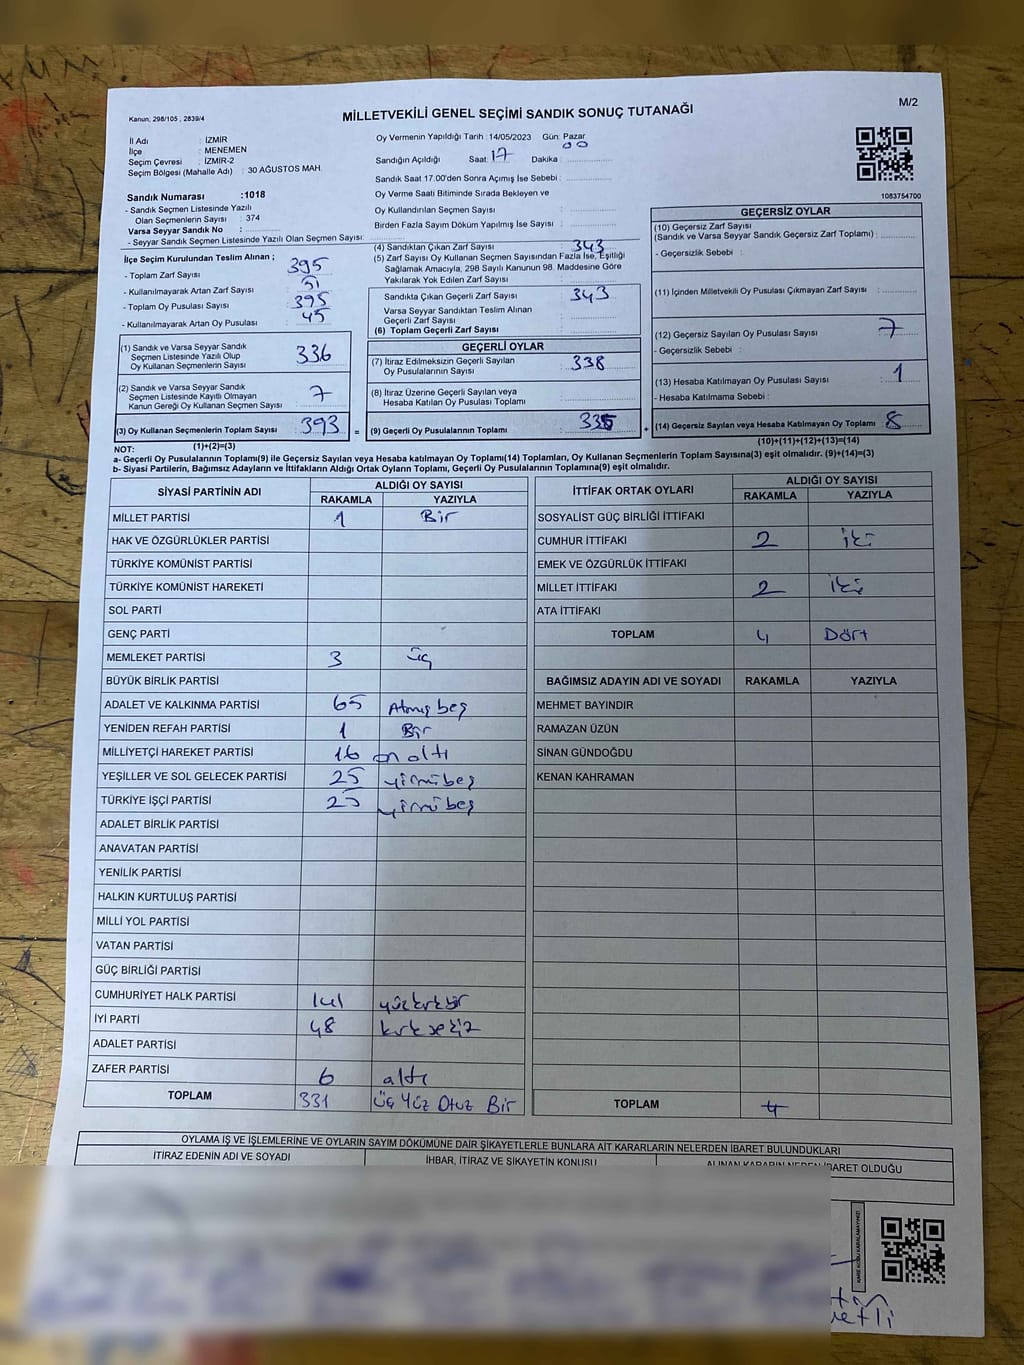 Kanun; 298/105 , 2839/4
MİLLETVEKİLİ GENEL SEÇİMİ SANDIK SONUÇ TUTANAĞI
M/2
İl Adı : İZMİR
İlçe : MENEMEN
Seçim Çevresi : İZMİR-2
Seçim Bölgesi (Mahalle Adı) : 30 AĞUSTOS MAH.
Sandık Numarası :1018
- Sandık Seçmen Listesinde Yazılı
Olan Seçmenlerin Sayısı : 374
Varsa Seyyar Sandık No :
- Seyyar Sandık Seçmen Listesinde Yazılı Olan Seçmen Sayısı:
Oy Vermenin Yapıldığı Tarih : 14/05/2023 Gün: Pazar
Sandığın Açıldığı Saat: 17 Dakika : 00
Sandık Saat 17.00'den Sonra Açımış İse Sebebi :
Oy Verme Saati Bitiminde Sırada Bekleyen ve
Oy Kullandırılan Seçmen Sayısı :
Birden Fazla Sayım Döküm Yapılmış İse Sayısı :
1083754700
İlçe Seçim Kurulundan Teslim Alınan ;
- Toplam Zarf Sayısı : 395
- Kullanılmayarak Artan Zarf Sayısı : 51
- Toplam Oy Pusulası Sayısı : 395
- Kullanılmayarak Artan Oy Pusulası : 45
(1) Sandık ve Varsa Seyyar Sandık
Seçmen Listesinde Yazılı Olup
Oy Kullanan Seçmenlerin Sayısı : 336
(2) Sandık ve Varsa Seyyar Sandık
Seçmen Listesinde Kayıtlı Olmayan
Kanun Gereği Oy Kullanan Seçmen Sayısı : 7
(3) Oy Kullanan Seçmenlerin Toplam Sayısı : 393
(1)+(2)=(3)
(4) Sandıktan Çıkan Zarf Sayısı : 343
(5) Zarf Sayısı Oy Kullanan Seçmen Sayısından Fazla İse, Eşitliği
Sağlamak Amacıyla, 298 Sayılı Kanunun 98. Maddesine Göre
Yakılarak Yok Edilen Zarf Sayısı :
Sandıkta Çıkan Geçerli Zarf Sayısı : 343
Varsa Seyyar Sandıktan Teslim Alınan
Geçerli Zarf Sayısı :
(6) Toplam Geçerli Zarf Sayısı :
GEÇERLİ OYLAR
(7) İtiraz Edilmeksizin Geçerli Sayılan
Oy Pusulalarının Sayısı : 338
(8) İtiraz Üzerine Geçerli Sayılan veya
Hesaba Katılan Oy Pusulası Toplamı :
= (9) Geçerli Oy Pusulalarının Toplamı : 335 +
GEÇERSİZ OYLAR
(10) Geçersiz Zarf Sayısı
(Sandık ve Varsa Seyyar Sandık Geçersiz Zarf Toplamı) :
- Geçersizlik Sebebi :
(11) İçinden Milletvekili Oy Pusulası Çıkmayan Zarf Sayısı :
(12) Geçersiz Sayılan Oy Pusulası Sayısı : 7
- Geçersizlik Sebebi :
(13) Hesaba Katılmayan Oy Pusulası Sayısı : 1
- Hesaba Katılmama Sebebi :
(14) Geçersiz Sayılan veya Hesaba Katılmayan Oy Toplamı : 8
(10)+(11)+(12)+(13)=(14)
NOT:
a- Geçerli Oy Pusulalarının Toplamı(9) ile Geçersiz Sayılan veya Hesaba katılmayan Oy Toplamı(14) Toplamları, Oy Kullanan Seçmenlerin Toplam Sayısına(3) eşit olmalıdır. (9)+(14)=(3)
b- Siyasi Partilerin, Bağımsız Adayların ve İttifakların Aldığı Ortak Oyların Toplamı, Geçerli Oy Pusulalarının Toplamına(9) eşit olmalıdır.
SİYASİ PARTİNİN ADI ALDIĞI OY SAYISI
RAKAMLA YAZIYLA
MİLLET PARTİSİ 1 Bir
HAK VE ÖZGÜRLÜKLER PARTİSİ
TÜRKİYE KOMÜNİST PARTİSİ
TÜRKİYE KOMÜNİST HAREKETİ
SOL PARTİ
GENÇ PARTİ
MEMLEKET PARTİSİ 3 üç
BÜYÜK BİRLİK PARTİSİ
ADALET VE KALKINMA PARTİSİ 65 Atmış beş
YENİDEN REFAH PARTİSİ 1 Bir
MİLLİYETÇİ HAREKET PARTİSİ 16 on altı
YEŞİLLER VE SOL GELECEK PARTİSİ 25 yirmibeş
TÜRKİYE İŞÇİ PARTİSİ 25 yirmibeş
ADALET BİRLİK PARTİSİ
ANAVATAN PARTİSİ
YENİLİK PARTİSİ
HALKIN KURTULUŞ PARTİSİ
MİLLİ YOL PARTİSİ
VATAN PARTİSİ
GÜÇ BİRLİĞİ PARTİSİ
CUMHURİYET HALK PARTİSİ 141 yüzkırkbir
İYİ PARTİ 48 kırksekiz
ADALET PARTİSİ
ZAFER PARTİSİ 6 altı
TOPLAM 331 üç Yüz Otuz Bir
İTTİFAK ORTAK OYLARI ALDIĞI OY SAYISI
RAKAMLA YAZIYLA
SOSYALİST GÜÇ BİRLİĞİ İTTİFAKI
CUMHUR İTTİFAKI 2 iki
EMEK VE ÖZGÜRLÜK İTTİFAKI
MİLLET İTTİFAKI 2 iki
ATA İTTİFAKI
TOPLAM 4 Dört
BAĞIMSIZ ADAYIN ADI VE SOYADI RAKAMLA YAZIYLA
MEHMET BAYINDIR
RAMAZAN ÜZÜN
SİNAN GÜNDOĞDU
KENAN KAHRAMAN
TOPLAM 4
OYLAMA İŞ VE İŞLEMLERİNE VE OYLARIN SAYIM DÖKÜMÜNE DAİR ŞİKAYETLERLE BUNLARA AİT KARARLARIN NELERDEN İBARET BULUNDUKLARI
İTİRAZ EDENİN ADI VE SOYADI İHBAR, İTİRAZ VE ŞİKAYETİN KONUSU ALINAN KARARIN NEDEN İBARET OLDUĞU
KARE KODU KARALAMAYINIZ!